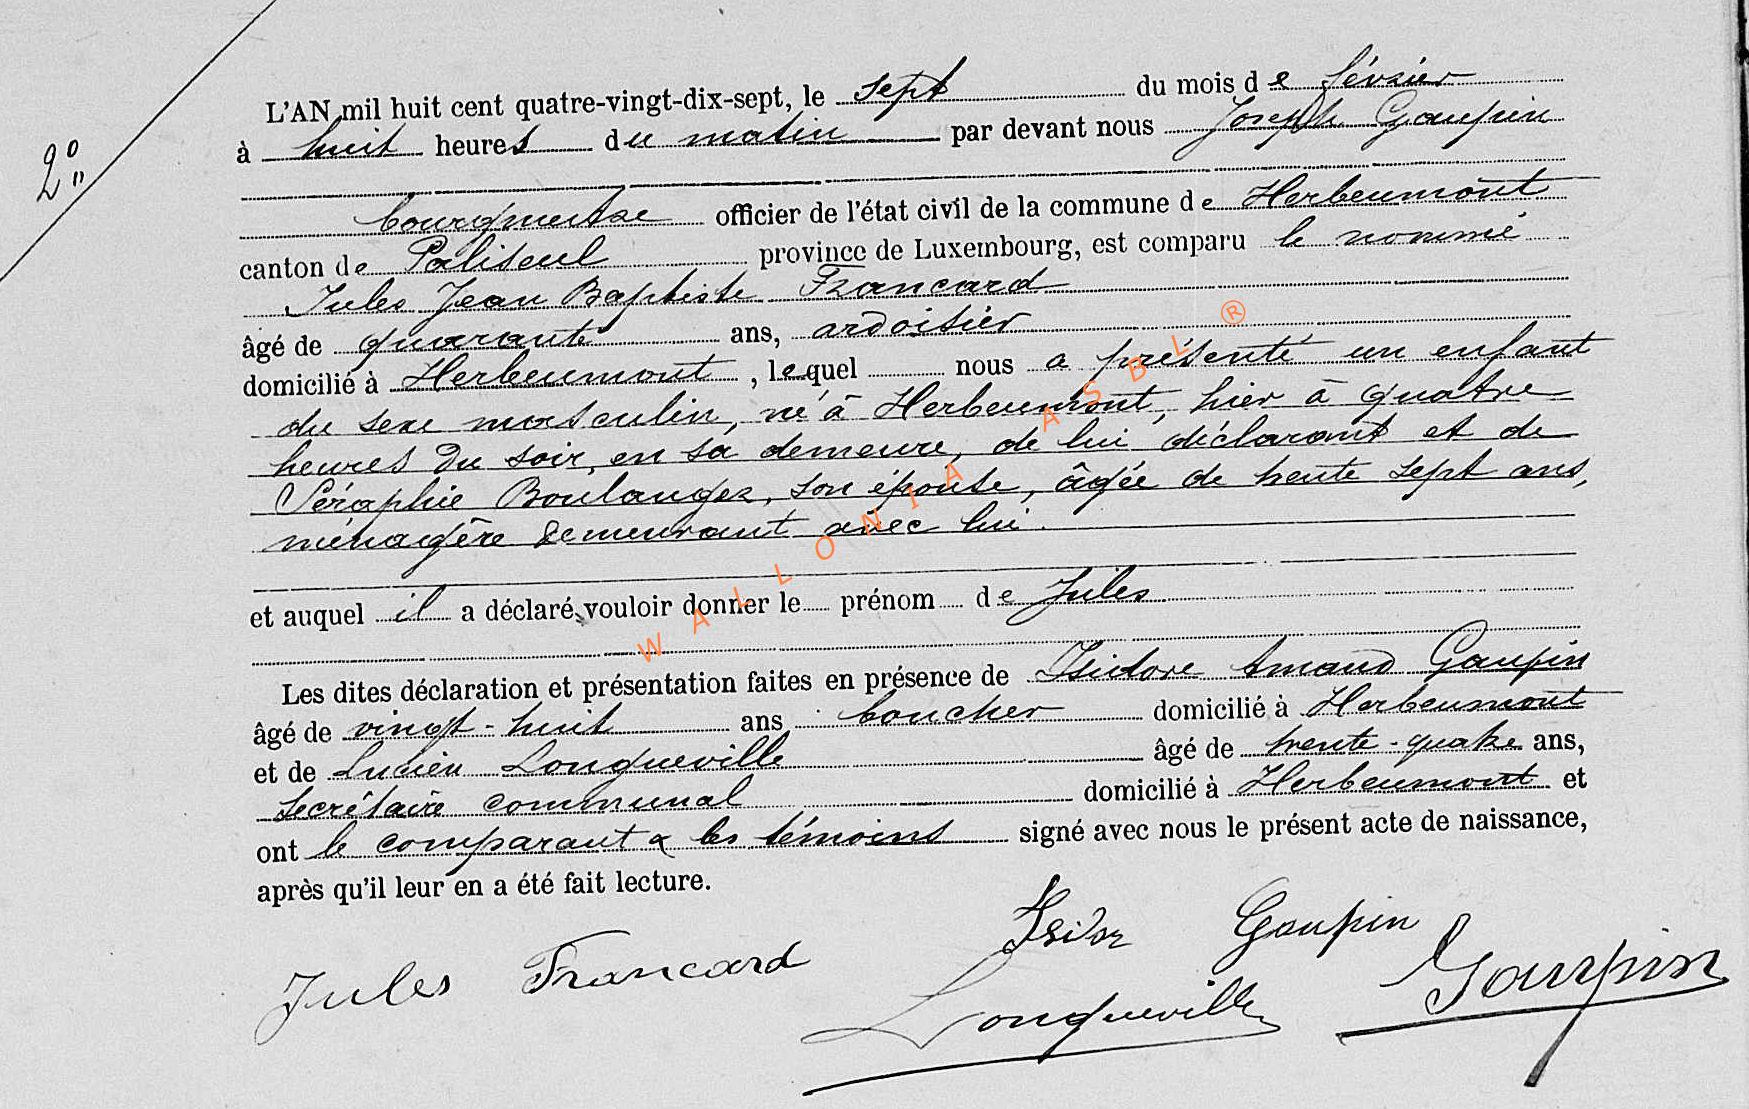 L'AN mil huit cent quatre-vingt-dix-sept, le sept du mois de février
à huit heures du matin par devant nous Joseph Gaupin
2°
bourgmestre officier de l'état civil de la commune de Herbeumont
canton de Paliseul province de Luxembourg, est comparu le nommé
Jules Jean Baptiste Francard
âgé de quarante ans, ardoisier
domicilié à Herbeumont, lequel nous a présenté un enfant
du sexe masculin, né à Herbeumont, hier à quatre
heures du soir, en sa demeure, de lui déclarant et de
Séraphie Boulanger, son épouse, âgée de trente sept ans,
ménagère demeurant avec lui.
et auquel il a déclaré vouloir donner le prénom de Jules
Les dites déclaration et présentation faites en présence de Isidore Amand Gaupin
âgé de vingt-huit ans boucher domicilié à Herbeumont
et de Lucien Longueville âgé de trente-quatre ans,
secrétaire communal domicilié à Herbeumont et
ont le comparant & les témoins signé avec nous le présent acte de naissance,
après qu'il leur en a été fait lecture.
Jules Francard Isidor Gaupin
Longueville Gaupin
WALLONIA ASBL ®